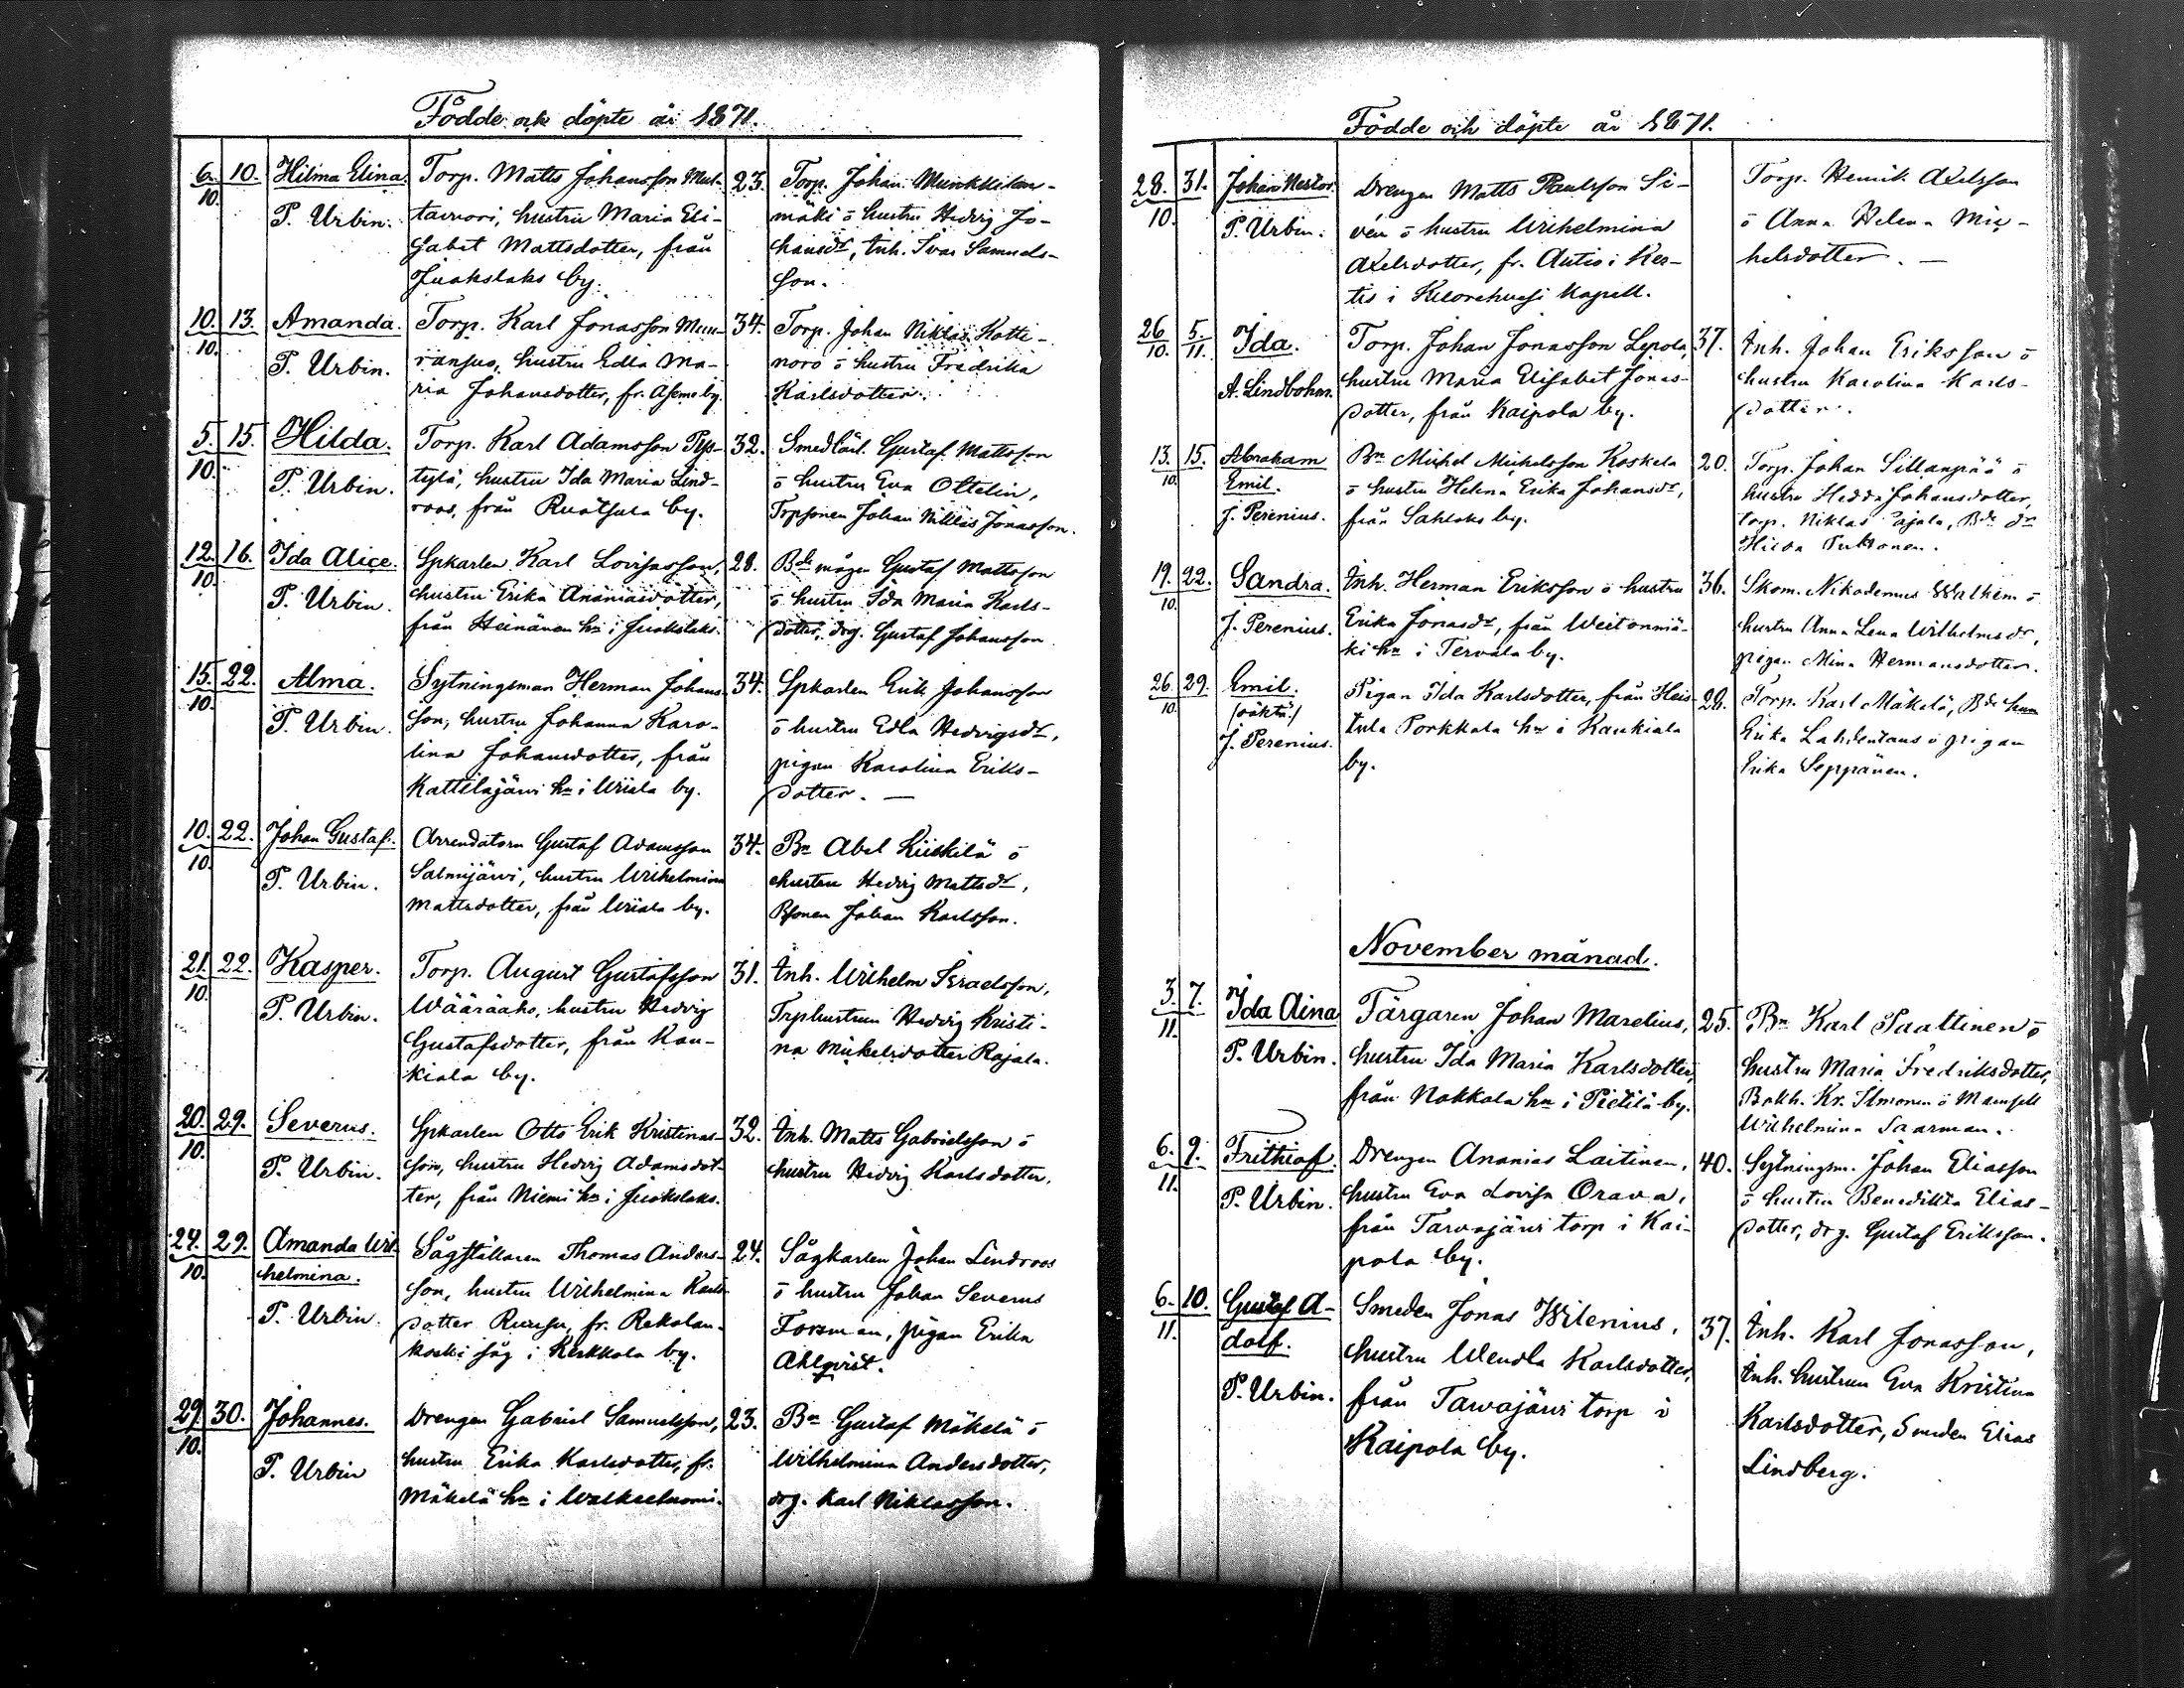 Födde och döpte år 1871.
6. 10. Hilma Elina. Torp. Matts Johansson Mus- 23. Torp. Johan Munkkilan-
10. P. Urbin. tavuori, hustru Maria Eli- mäki o hustru Hedvig Jo-
sabet Mattsdotter, från hansdr, Inh. Ivar Samuels-
Juokslaks by. son.
10. 13. Amanda. Torp. Karl Jonasson 34. Torp. Johan Niklas. Kotti-
10. P. Urbin. hustru Edla Ma- noro o hustru Fredrika
ria Johansdotter, fr. Asemo by. Karlsdotter.
5. 15. Hilda. Torp. Karl Adamsson Pys- 32. Smedlärl. Gustaf Mattsson
10. P. Urbin. tylä, hustru Ida Maria Lind- o hustru Eva Ottelin,
roos, från Ruotsula by. Trpsonen Johan Niklas Jonasson.
12. 16. Ida Alice. Spkarlen Karl Lovisasson, 28. Bde mågen Gustaf Mattsson
10. P. Urbin. hustru Erika Ananiasdotter, o hustru Ida Maria Karls-
från Heinänen hn i Juokslaks. dotter, drg. Gustaf Johansson
15. 22. Alma. Sytningsman Herman Johans- 34. Spkarlen Erik Johansson
10. P. Urbin. son, hustru Johanna Karo- o hustru Edla Hedvigsdr,
lina Johansdotter, från pigan Karolina Eriks-
Kattilajärvi hn i Wiiala by. dotter. —
10. 22. Johan Gustaf. Arrendatorn Gustaf Adamsson 34. Bn Abel Kiiskilä o
10. P. Urbin. Salmijärvi, hustru Wilhelmina hustru Hedvig Mattsdr,
Mattsdotter, från Wiiala by. Bsonen Johan Karlsson.
21. 22. Kasper. Torp. August Gustafsson 31. Inh. Wilhelm Israelsson,
10. P. Urbin. Wääräaho, hustru Hedvig Trphustrun Hedvig Kristi-
Gustafsdotter, från Kau- na Mickelsdotter Rajala.
kiala by.
20. 29. Severus. Spkarlen Otto Erik Kristinas- 32. Inh. Matts Gabrielsson o
10. P. Urbin. son, hustru Hedvig Adamsdot- hustru Hedvig Karlsdotter.
ter, från Niemi hn i Juokslaks.
24. 29. Amanda Wil- Sågställaren Thomas Anders- 24. Sågkarlen Johan Lindroos
10. helmina. son, hustru Wilhelmina Karls- o hustru Johan Severus
P. Urbin. dotter fr. Rekolan- Forsman, pigan Erika
koski såg i Kerkkola by. Ahlqvist.
29. 30. Johannes. Drengen Gabriel Samuelsson, 23. Bn Gustaf Mäkelä o
10. P. Urbin hustru Erika Karlsdotter, fr. Wilhelmina Andersdotter,
Mäkelä hn i drg. Karl Niklasson.
Födde och döpte år 1871.
28. 31. Johan Nestor. Drengen Matts Paulsson Si- Torp. Henrik Axelsson
10. P. Urbin. vén o hustru Wilhelmina o Anna Helena Mic-
Axelsdotter, fr. Autio i Ker- helsdotter. —
tis i Kuorehvesi Kapell.
26 5. Ida. Torp. Johan Jonasson Lepola, 37. Inh. Johan Eriksson o
10. 11. A. Lindbohm. hustru Maria Elisabet Jonas- hustru Karolina Karls-
dotter, från Kaipola by. dotter.
13. 15. Abraham Bn Michel Michelsson Koskela 20. Torp. Johan Sillanpää o
10. Emil. o hustru Helena Erika Johansdr, hustru Hedda Johansdotter,
J. Perenius. från Sahlaks by. torp. Niklas Pajala, Bde dr
Hilda
19. 22. Sandra. Inh. Herman Eriksson o hustru 36. Skom. Nikodemus Walhem o
10. J. Perenius. Erika Jonasdr, från Weitonmä- hustru Anna Lena Wilhelmsdr,
ki hn i Tervala by. pigan Mina Hermansdotter.
26 29. Emil. Pigan Ida Karlsdotter, från Heis- 28. Torp. Karl Mäkelä, Bde hun
10 /oäkta/ tula Porkkala hn i Kaukiala Erika Lahdentaus o pigan
J. Perenius. by. Erika Seppänen.
November månad.
3. 7. Ida Aina Färgaren Johan Marelius, 25. Bn Karl Saaltinen o
11. P. Urbin. hustru Ida Maria Karlsdotter, hustru Maria Fredriksdotter,
från Nokkala hn i Pietilä by. Bokh. Kr. Ilmonen o Mamsell
Wilhelmina Saarman.
6. 9. Frithiof. Drengen Ananias Laitinen, 40. Sytningsm. Johan Eliasson
11. P. Urbin. hustru Eva Lovisa Orava, o hustru Benedikta Elias-
från Tarvajärvi torp i Kai- dotter, drg. Gustaf Eriksson.
pola by.
6. 10. Gustaf A- Smeden Jonas Wilenius, 37. Inh. Karl Jonasson,
11. dolf. hustru Wendla Karlsdotter, Inh. hustrun Eva Kristina
P. Urbin. från Tarvajärvi torp i Karlsdotter, Smeden Elias
Kaipola by. Lindberg.